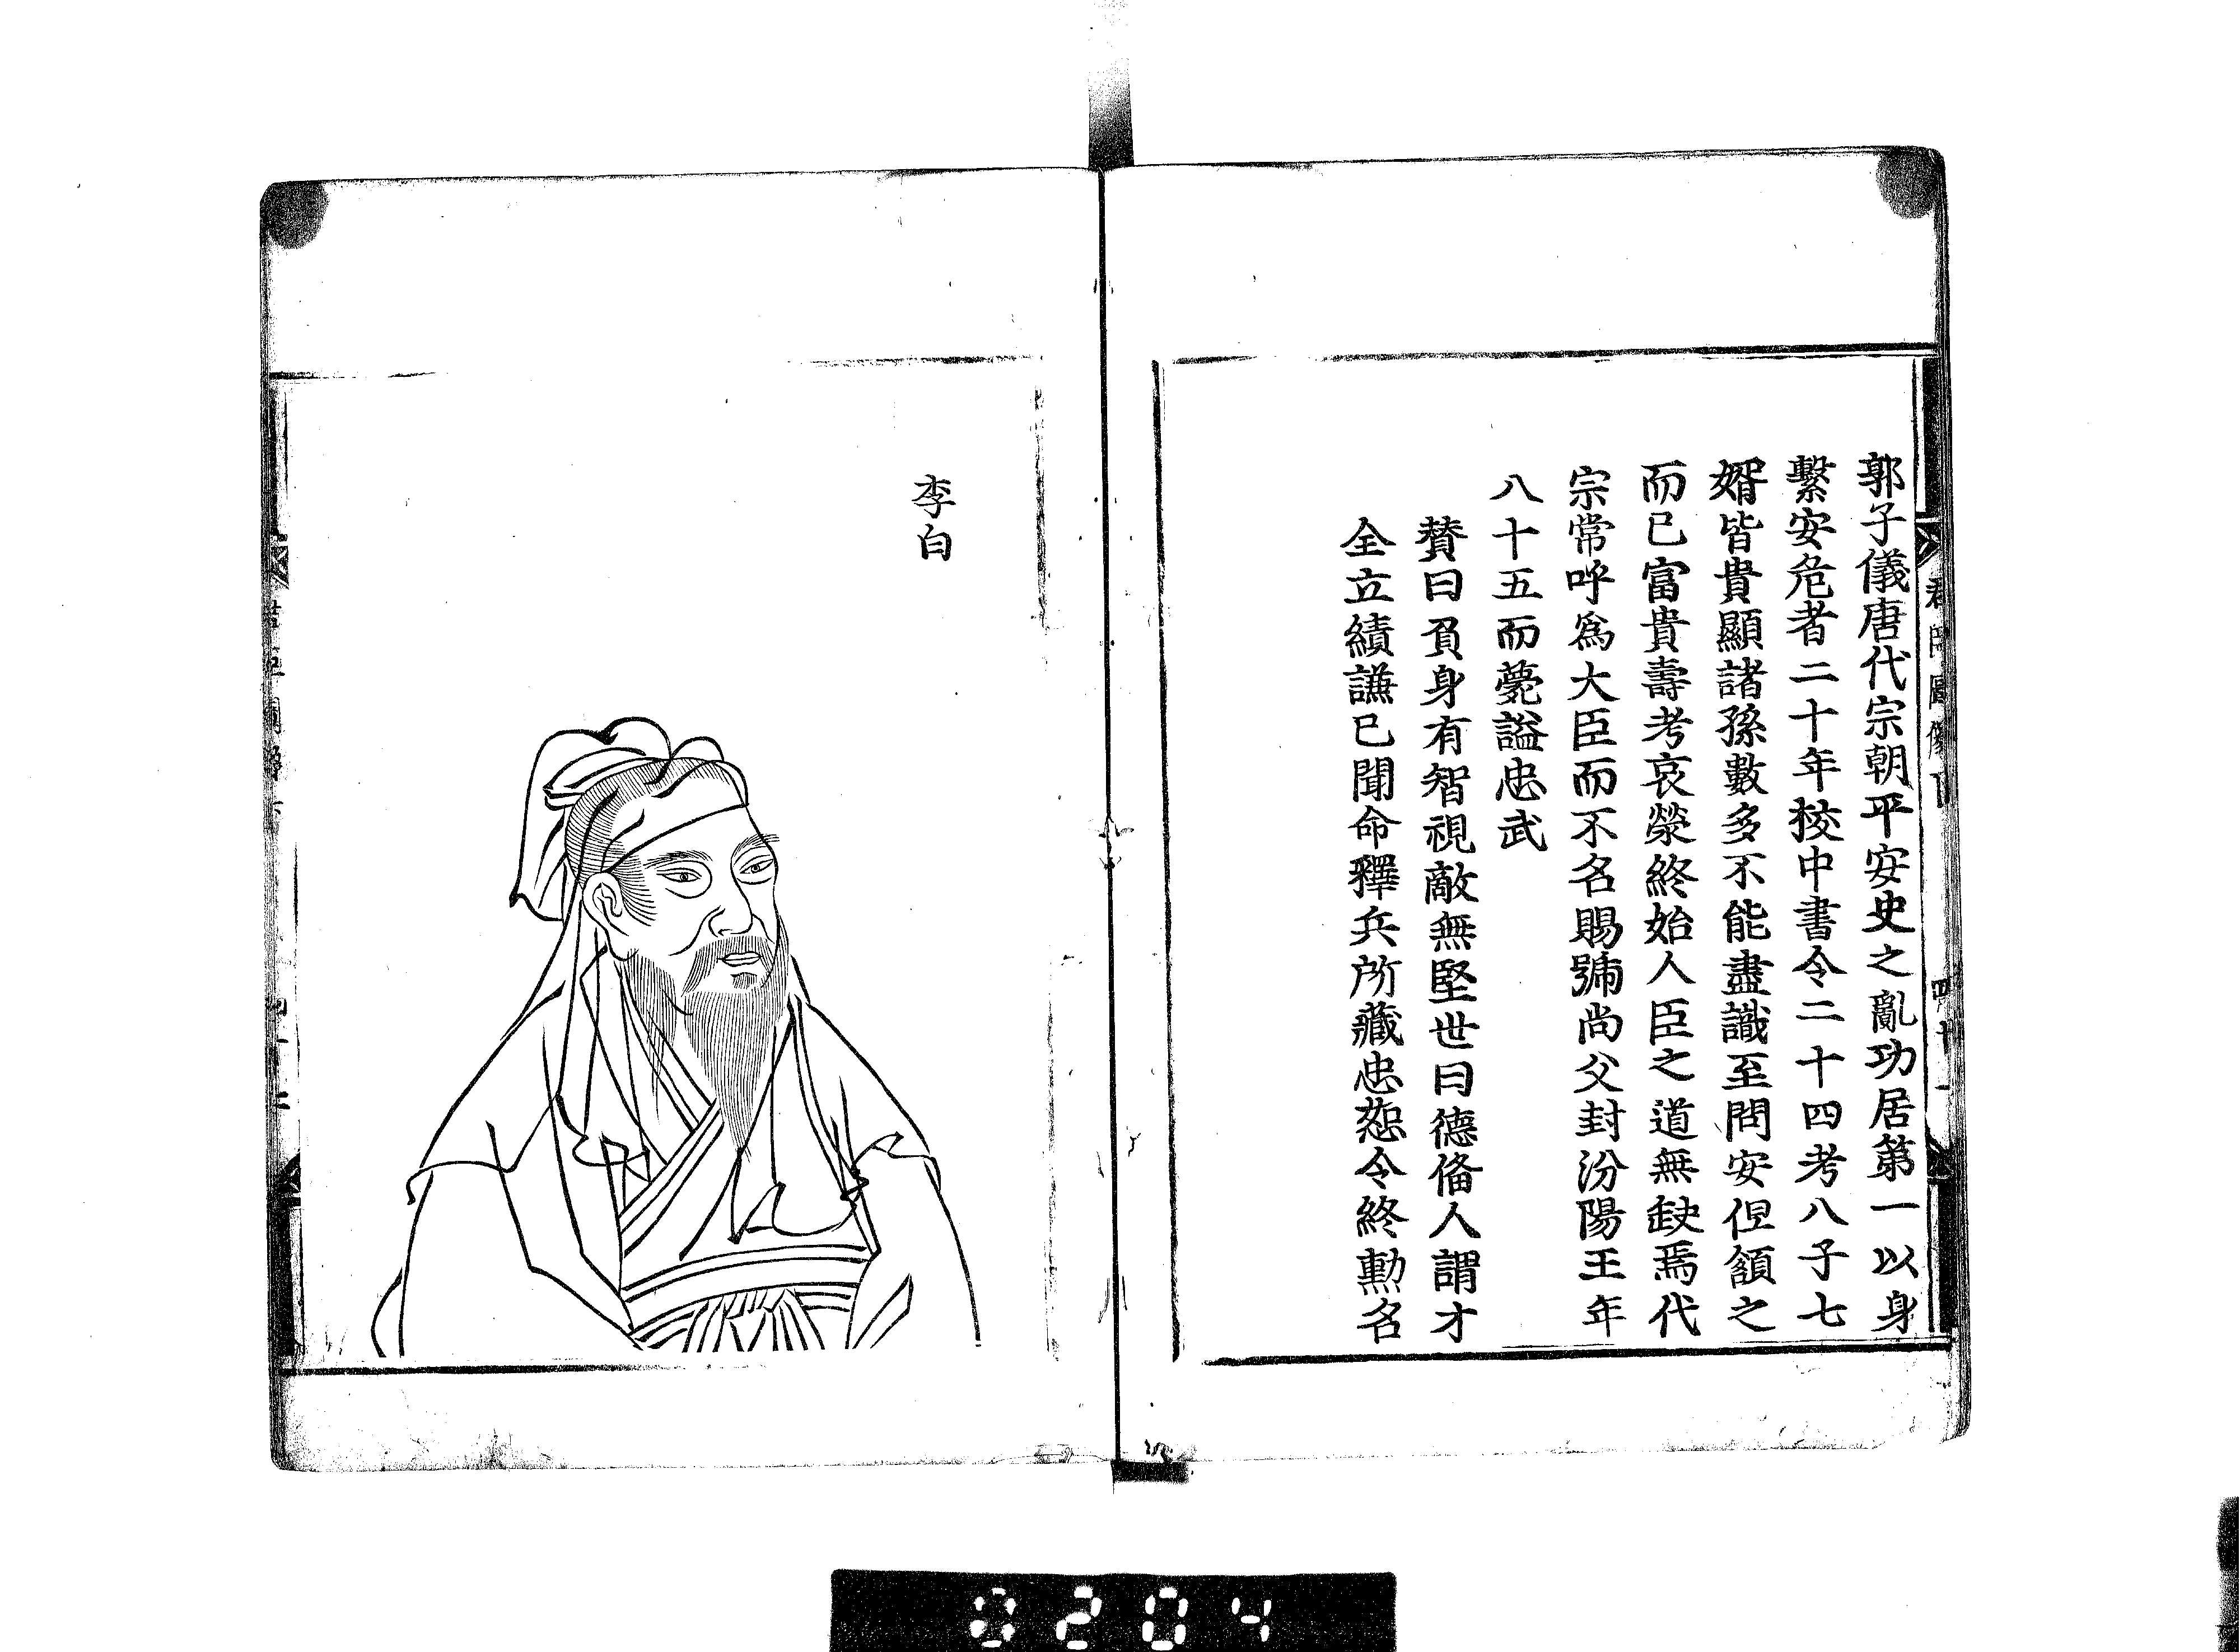 郭子儀唐代宗朝平安史之亂功居第一以身
繫安危者二十年校中書令二十四考八子七
婿皆貴顯諸孫數多不能盡識至問安但頷之
而已富貴壽考哀榮終始人臣之道無缺焉代
宗常呼爲大臣而不名賜號尚父封汾陽王年
八十五而薨謚忠武
賛曰負身有智視敵無堅世曰德俻人謂才
全立績謙已聞命釋兵所藏忠恕令終勳名
李白
0204